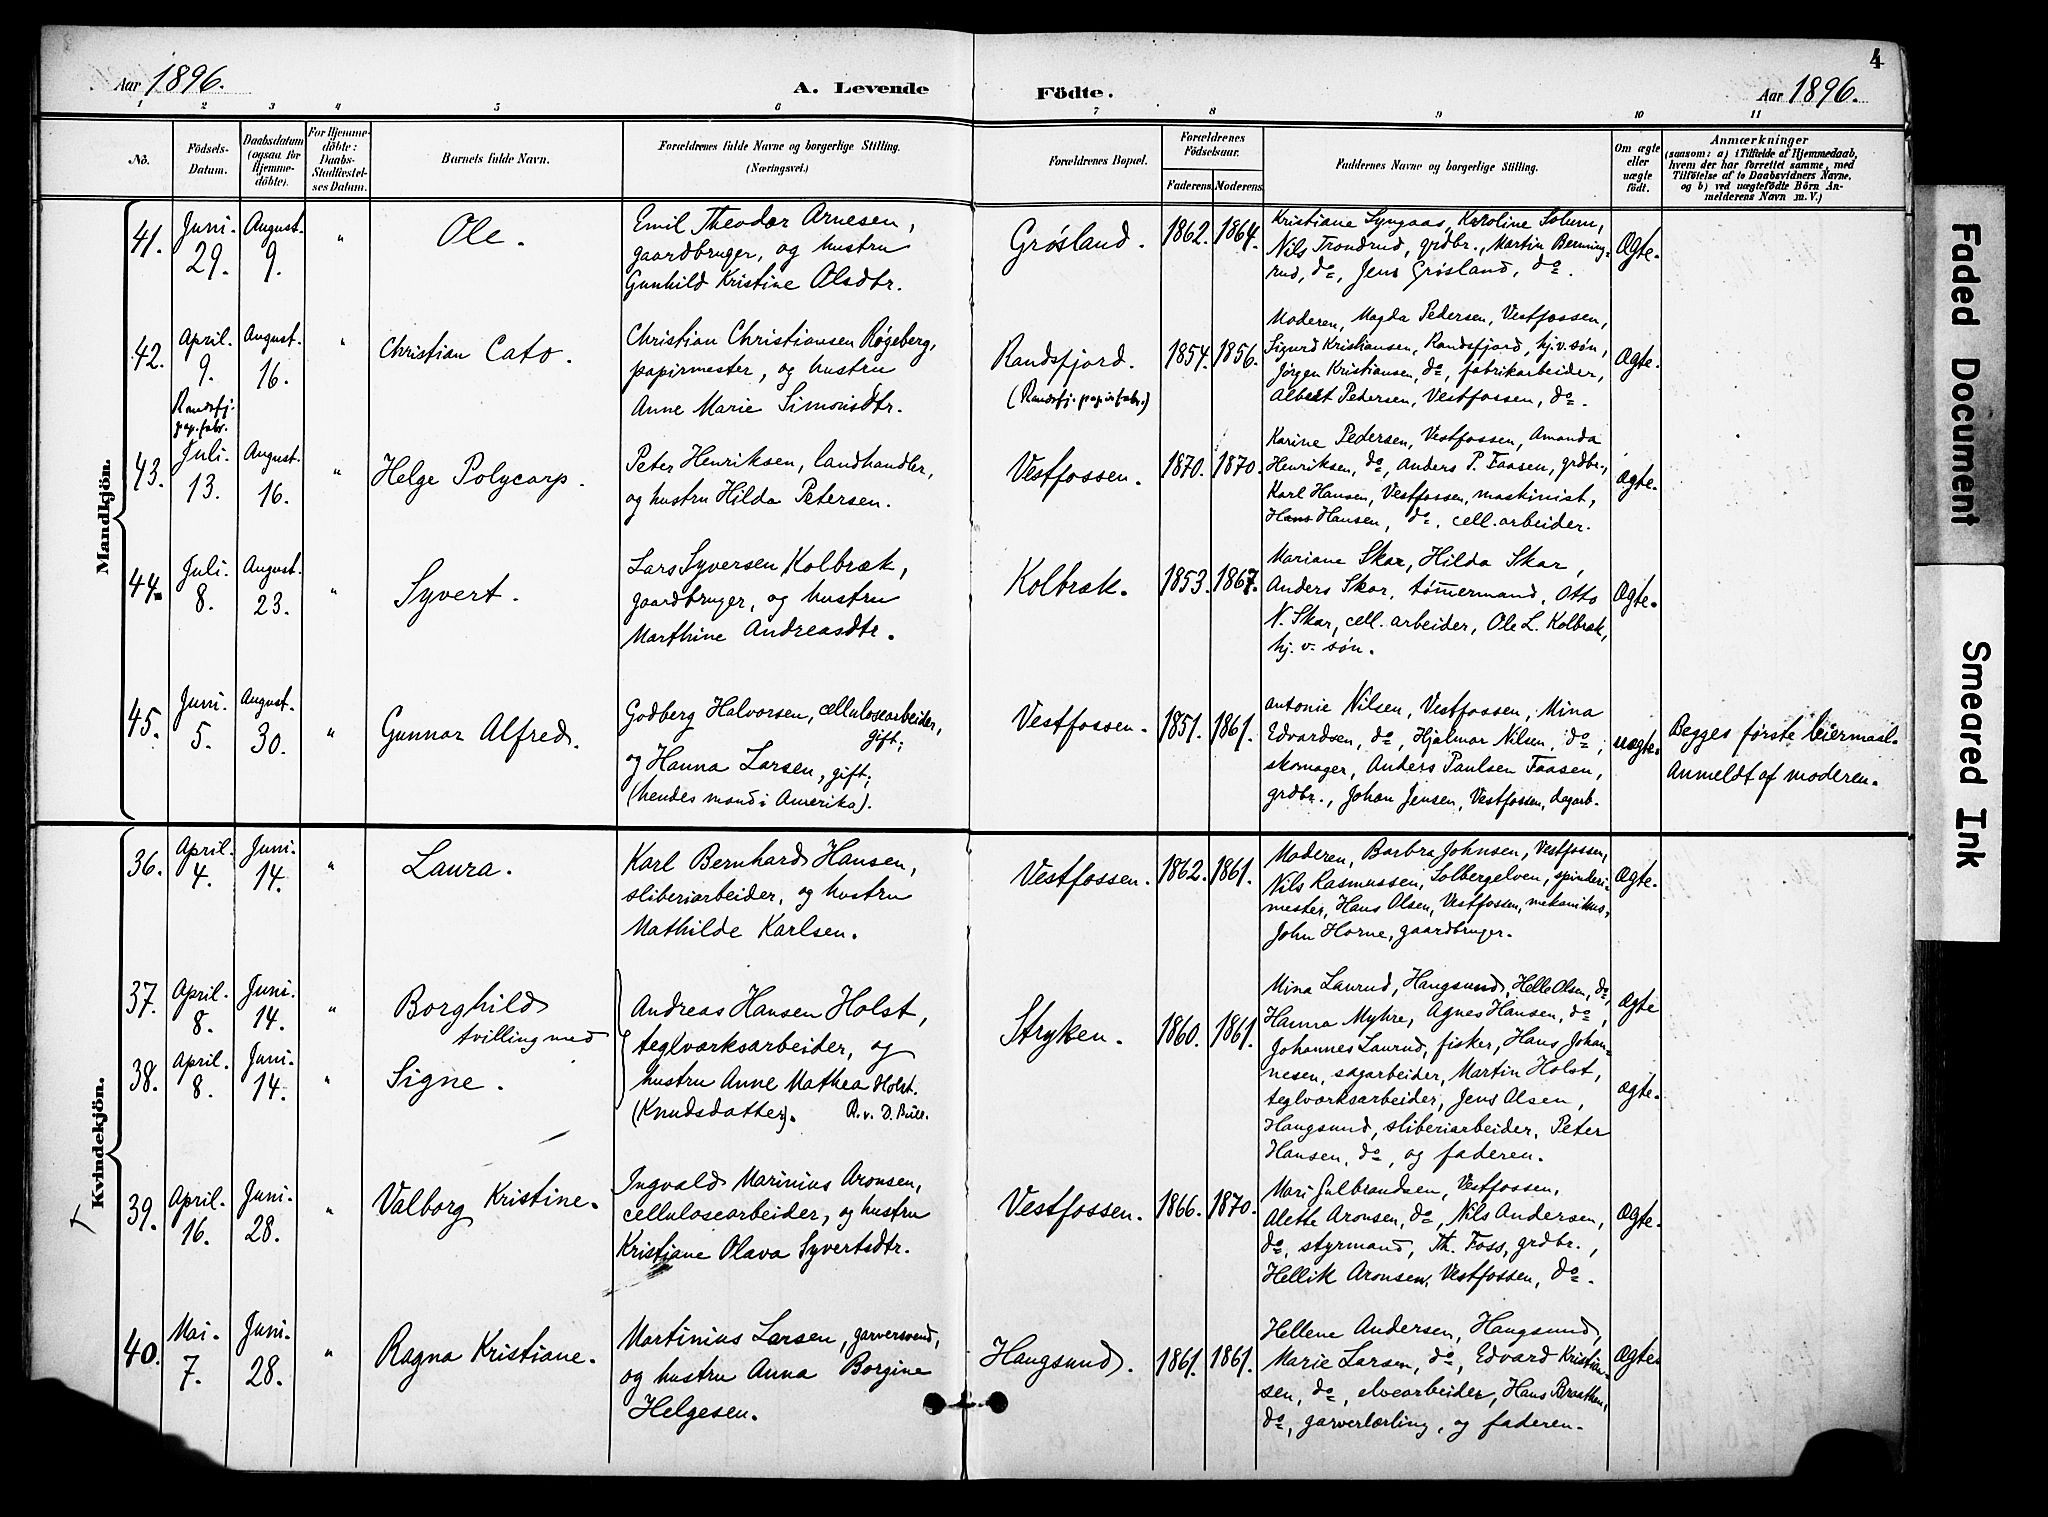 4
Aar 1896.
A. Levende Födte.
Aar 1896.
1 2 3 4 5 6 7 8 9 10 11
No.
Födsels-
Datum.
Daabsdatum
(ogsaa for
Hjemme-
döbte).
For Hjemme-
döbte:
Daabs-
Stadfæstel-
ses Datum.
Barnets fulde Navn.
Forældrenes fulde Navne og borgerlige Stilling.
(Næringsvei.)
Forældrenes Bopæl.
Forældrenes
Födselsaar.
Faderens. Moderens.
Faddernes Navne og borgerlige Stilling.
Om ægte
eller
uægte
födt.
Anmærkninger
(saasom: a) i Tilfælde af Hjemmedaab,
hvem der har forrettet samme, med
Tilföielse af to Daabsvidners Navne,
og b) ved uægtefödte Börn An-
melderens Navn m. V.)
Mandkjön.
41.
Juni
29.
August.
9.
"
Ole.
Emil Theodor Arnesen,
gaardbruger, og hustru
Gunhild Kristine Olsdtr.
Grøsland.
1862. 1864.
Kristiane Syngaas, Karoline Solum,
Nils Trondrud, grdbr., Martin Benning-
rud, do, Jens Grøsland, do.
Ægte.
42.
April.
9.
Randsfj.
pap.fabr.
August.
16.
"
Christian Cato.
Christian Christiansen Røgeberg,
papirmester, og hustru
Anne Marie Simonsdtr.
Randsfjord.
(Randsfj. papirfabr.)
1854. 1856.
Moderen, Magda Pedersen, Vestfossen,
Sigurd Kristiansen, Randsfjord, hj.v.søn,
Jørgen Kristiansen, do, fabrikarbeider,
Albert Petersen, Vestfossen, do.
Ægte.
43.
Juli.
13.
August.
16.
"
Helge Polycarp.
Peter Henriksen, landhandler,
og hustru Hilda Petersen.
Vestfossen.
1870. 1870.
Karine Pedersen, Vestfossen, Amanda
Henriksen, do, Anders P. Faasen, grdbr.,
Karl Hansen, Vestfossen, maskinist,
Hans Hansen, do, cell.arbeider.
Ægte.
44.
Juli.
8.
August.
23.
"
Syvert.
Lars Syversen Kolbræk,
gaardbruger, og hustru
Marthine Andreasdtr.
Kolbræk.
1853. 1867.
Mariane Skar, Hilda Skar,
Anders Skar, tømmermand, Otto
N. Skar, cell. arbeider, Ole L. Kolbræk,
hj. v. søn.
Ægte.
45.
Juni.
5.
August.
30.
"
Gunnar Alfred.
Godberg Halvorsen, cellulosearbeider,
gift;
og Hanna Larsen, gift;
(hendes mand i Amerika).
Vestfossen.
1851. 1861.
Antonie Nilsen, Vestfossen, Mina
Edvardsen, do, Hjalmar Nilsen, do,
skomager, Anders Paulsen Faasen,
grdbr., Johan Jensen, Vestfossen, dagarb.
uægte.
Begges første leiermaal.
Anmeldt af moderen.
Kvindekjön.
36.
April.
4.
Juni.
14.
"
Laura.
Karl Bernhard Hansen,
sliberiarbeider, og hustru
Mathilde Karlsen.
Vestfossen.
1862. 1861.
Moderen, Barbra Johnsen, Vestfossen,
Nils Rasmussen, Solbergelven, spinderi-
mester, Hans Olsen, Vestfossen, mekanikus,
John Horne, gaardbruger.
Ægte.
37.
April.
8.
Juni.
14.
"
Borghild
tvilling med
Andreas Hansen Holst,
teglværksarbeider, og
hustru Anne Mathea Holst.
(Knudsdatter). R. v. D. Bull.
Stryken.
1860. 1861.
Mina Laurud, Haugsund, Helle Olsen, do,
Hanna Myhre, Agnes Hansen, do,
Johannes Laurud, fisker, Hans Johan-
nesen, sagarbeider, Martin Holst,
teglværksarbeider, Jens Olsen,
Haugsund, sliberiarbeider, Peter
Hansen, do, og faderen.
Ægte
38.
April.
8.
Juni.
14.
"
Signe.
ægte.
39.
April.
16.
Juni.
28.
"
Valborg Kristine.
Ingvald Marinius Aronsen,
cellulosearbeider, og hustru
Kristiane Olava Syvertsdtr.
Vestfossen.
1866. 1870.
Mari Gulbrandsen, Vestfossen,
Alette Aronsen, do, Nils Andersen,
do, styrmand, Th. Foss, grdbr.,
Hellik Aronsen, Vestfossen, do.
Ægte.
40.
Mai.
7.
Juni.
28.
"
Ragna Kristiane.
Martinius Larsen, garversvend,
og hustru Anna Borgine
Helgesen.
Haugsund.
1861. 1861.
Hellene Andersen, Haugsund,
Marie Larsen, do, Edvard Kristian-
sen, do, elvearbeider, Hans Braathen,
do, garverlærling, og faderen.
Ægte
Faded Document
Smeared Ink